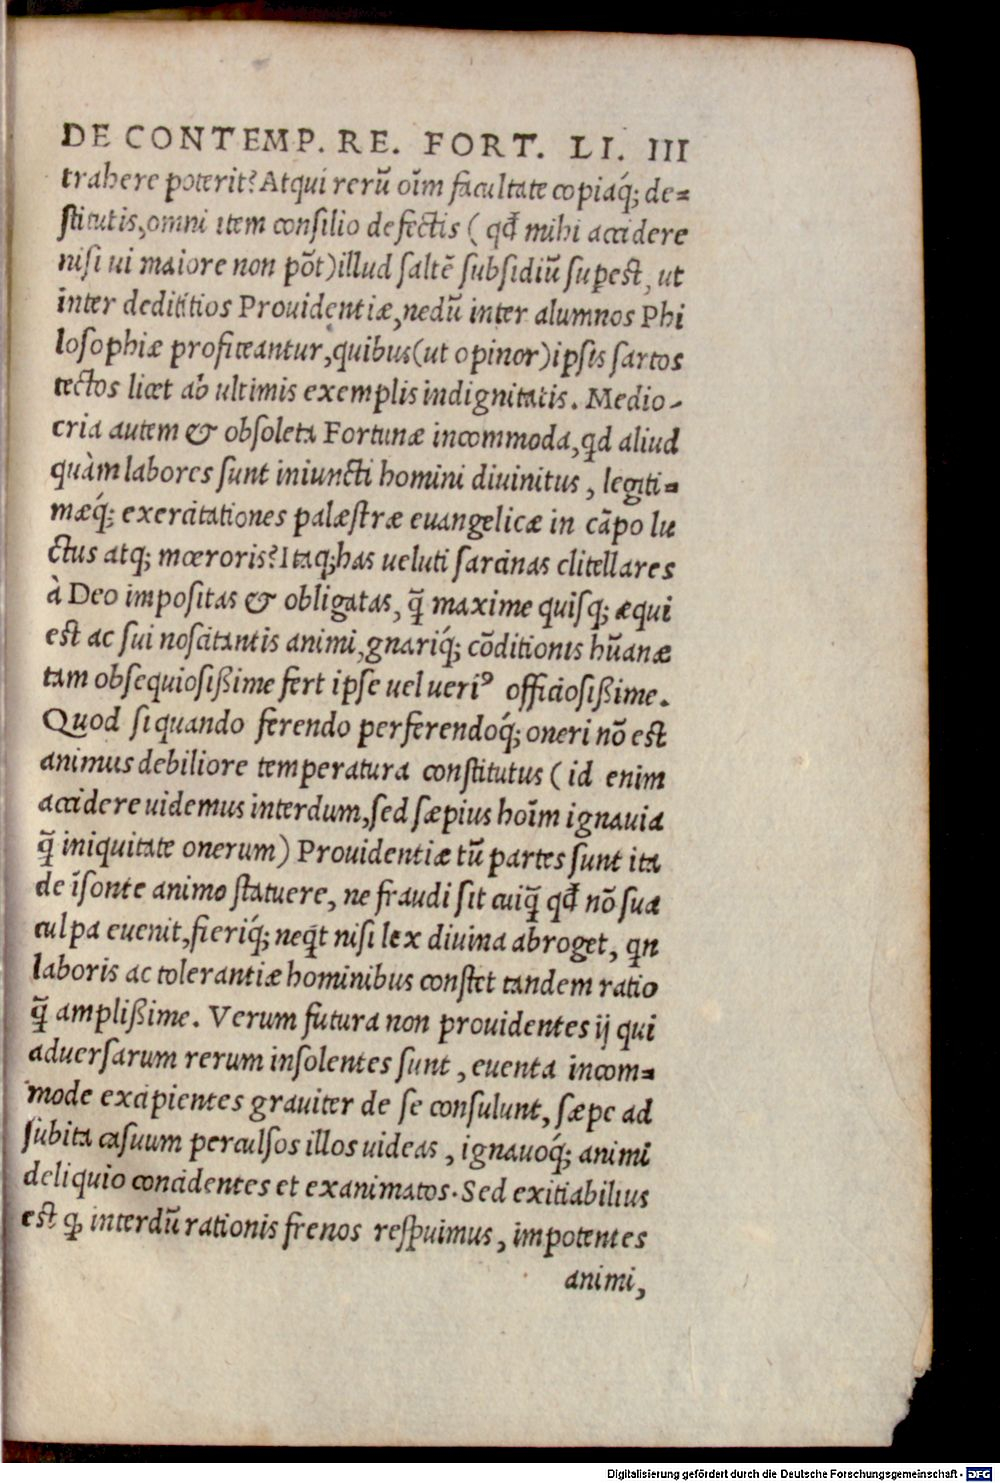 DE CONTEMP. RE. FORT. LI. III
trahere poterit? Atqui rerũ oĩm facultate copiaq́; de=
stitutis, omni item consilio defectis ( qđ mihi accidere
nisi ui maiore non põt) illud saltẽ subsidiũ supest, ut
inter dedititios Prouidentiæ, nedũ inter alumnos Phi
losophiæ profiteantur, quibus (ut opinor) ipsis sartos
tectos licet ab ultimis exemplis indignitatis. Medio-
cria autem & obsoleta Fortunæ incommoda, qd aliud
quàm labores sunt iniuncti homini diuinitus, legiti=
mæq́; exercitationes palæstræ euangelicæ in cãpo lu
ctus atq; mœroris? Itaq; has ueluti sarcinas clitellares
à Deo impositas & obligatas, q̃ maxime quisq; æqui
est ac sui noscitantis animi, gnariq́; cõditionis hũanæ
tam obsequiosißime fert ipse uel ueriꝰ officiosißime.
Quod si quando ferendo perferendoq́; oneri nõ est
animus debiliore temperatura constitutus ( id enim
accidere uidemus interdum, sed sæpius hoĩm ignauia
q̃ iniquitate onerum) Prouidentiæ tũ partes sunt ita
de ĩsonte animo statuere, ne fraudi sit cuiq̃ qđ nõ sua
culpa euenit, fieriq́; neq̃t nisi lex diuina abroget, qn
laboris ac tolerantiæ hominibus constet tandem ratio
q̃ amplißime. Verum futura non prouidentes ij qui
aduersarum rerum insolentes sunt, euenta incom=
mode excipientes grauiter de se consulunt, sæpe ad
subita casuum perculsos illos uideas, ignauoq́; animi
deliquio concidentes et exanimatos. Sed exitiabilius
est ꝙ interdũ rationis frenos respuimus, impotentes
animi,
Digitalisierung gefördert durch die Deutsche Forschungsgemeinschaft - DFG